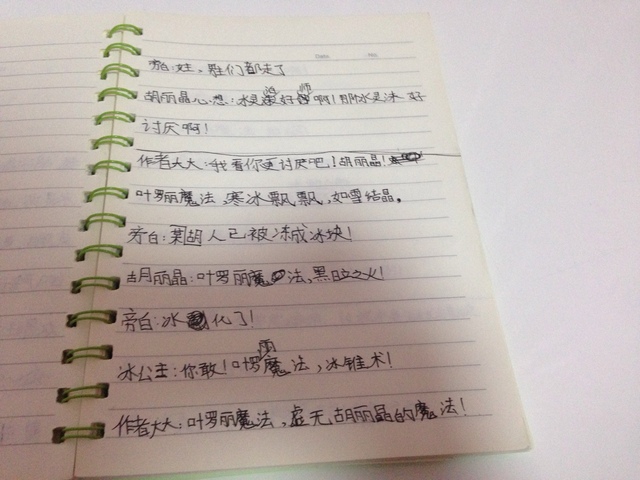 旁白:她,我们都走了
胡丽晶心想:冰灵好啊!那冰灵冰 好
讨厌啊!
作者大大:我看你更讨厌吧!胡丽晶!
叶罗丽魔法,寒冰飘飘,如雪结晶。
旁白:某胡人已被冻成冰块!
古月丽晶:叶罗丽魔法,黑暗之火!
旁白:冰化了!
冰公主:你敢!叶罗丽魔法,冰锥术!
作者大大:叶罗丽魔法,虚无胡丽晶的魔法!